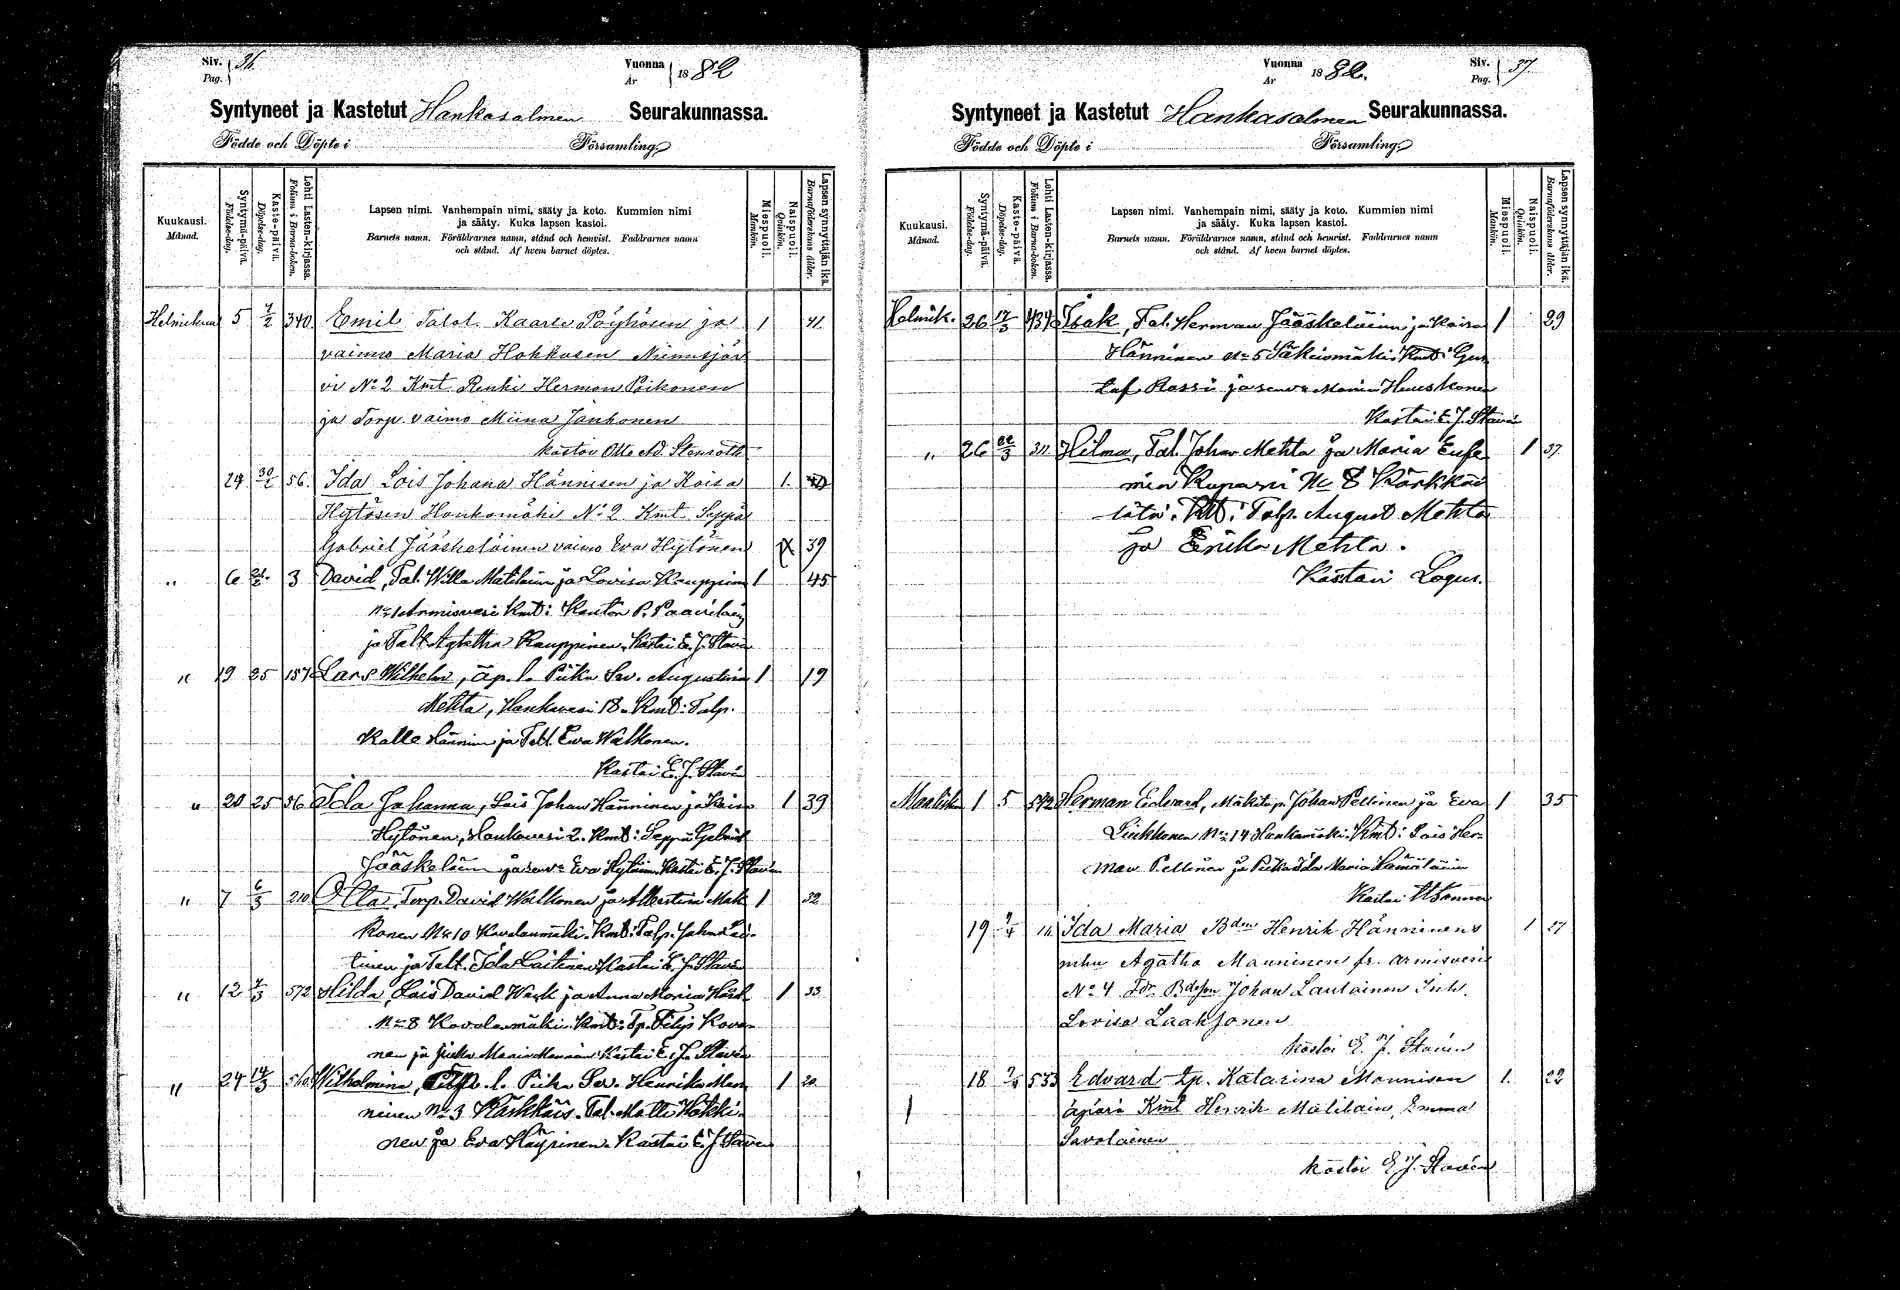 Siv. Pag. 36.
Vuonna År 1882
Syntyneet ja Kastetut Hankasalmen Seurakunnassa.
Födde och Döpte i Församling
Kuukausi. Månad.
Syntymä-päivä. Födelse-dag.
Kaste-päivä. Döpelse-dag.
Lehti Lasten-kirjassa. Folium i Barna-boken.
Lapsen nimi. Vanhempain nimi, sääty ja koto. Kummien nimi
ja sääty. Kuka lapsen kastoi.
Barnets namn. Föräldrarnes namn, stånd och hemvist. Faddrarnes namn
och stånd. Af hvem barnet döptes.
Miespuoli. Mankön.
Naispuoli. Qvinkön.
Lapsen synnyttäjän ikä. Barnaföderskans ålder.
Helmikuu 5 7/2 340. Emil Talol. Kaarle Pöyhösen ja 1 41.
vaimo Maria Hohkosen Niemisjär
vi No 2 Kmt Renki Herman Poikonen
ja Torp. vaimo Miina Janhonen
kastoi Otto Ad. Stenroth
24 56. Ida Lois Johana Hännisen ja Koisa 1.
Hytösen Hankamäki No 2 Kmt Seppä
Gabriel Jääskeläinen vaimo Eva Hytönen 39
" 6 3 David, Tal. Wille Matilainen ja Lovisa Kauppinen 1 45
No 1 Armisvesi Kmt: Kanttor P.
ja Talt. Agatha Kauppinen. Kastoi E. J. Stavén
" 19 25 157 Lars Wilhelm, äp. l. Piika Sar. Augustina 1 19
Mehta, Hankavesi 18. Kmt: Talp.
Kalle Hännin ja Talt. Eva Walkonen.
Kastoi E. J. Stavén
" 20 25 56 Ida Johanna, Lois Johan Hänninen ja Kaisa 1 39
Hytönen, Hankavesi 2. Kmt: Seppä Gabriel
Jääskeläinen ja sen va Eva Hytönen. Kastoi E. J. Stavén
" 7 6/3 210 Otta, Torp. David Walkonen ja Albertina Mak 1 32
konen No 10 Kovalanmäki. Kmt: Talp. Johan Lai-
tinen ja Talt. Ida Laitinen Kastoi E. J. Stavén
" 12 572 Hilda, Lois David Wark ja Anna Maria 1 33
No 8 Kovalanmäki. Kmt: Tp. Filip Kova-
nen ja piika Maria Kastoi E. J. Stavén
" 24 14/3 560. Wilhelmina, l. Piika Sar. Henrika Man 1 20.
ninen No 3 Kärkkäis. Tal. Matti Häkki-
nen ja Eva Häyrinen. Kastoi E. J. Staven
Siv. Pag. 37.
Vuonna År 1882.
Syntyneet ja Kastetut Hankasalmen Seurakunnassa.
Födde och Döpte i Församling
Kuukausi. Månad.
Syntymä-päivä. Födelse-dag.
Kaste-päivä. Döpelse-dag.
Lehti Lasten-kirjassa. Folium i Barna-boken.
Lapsen nimi. Vanhempain nimi, sääty ja koto. Kummien nimi
ja sääty. Kuka lapsen kastoi.
Barnets namn. Föräldrarnes namn, stånd och hemvist. Faddrarnes namn
och stånd. Af hvem barnet döptes.
Miespuoli. Mankön.
Naispuoli. Qvinkön.
Lapsen synnyttäjän ikä. Barnaföderskans ålder.
Helmik. 26 12/3 434 Isak, Tal. Herman Jääskeläinen ja Kaisa 1 29
Hänninen No 5 Säkinmäki. Kmt: Gus-
taf Rossi ja sen va Maria Huuskonen
Kastoi E. J. Stavén
" 26 22/3 311 Hilma, Tal. Johan Mehta ja Maria Eufe 1 37.
mia Kuparii No 8 Kärkkäi
lätä. Kmt: Talp. August Mehta
ja Erika Mehta.
Kastoi Logus.
Maalisk. 1 5 542 Herman Edvard, Mäkitup. Johan Pellinen ja Eva 1 35
Linkkonen No 14 Hankamäki. Kmt: Lois Her-
man Pellinen ja Piika Ida Maria Hämäläinen
Kastoi
19 9/4 Ida Maria Bdm Henrik Hänninens 1 27
mhu Agatha Manninen fr. Armisvesi
No 4 Fdr. Bdeson Johan Lautainen Inh.
Lovisa Laaksonen
kastoi E. J. Stavén
18 533 Edvard tp. Katarina Mannisen 1. 22
äpärä Kmt Henrik Matilain, Emma
Savolainen
kastoi E J. Stavén